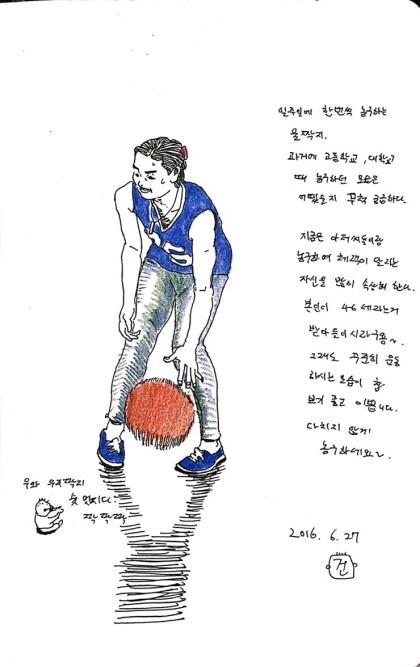 일주일에 한번씩 농구하는
울 딱지.
과거에 고등학교, 대학교
때 농구하던 모습은
어땠을지 무척 궁금하다.
지금은 아저씨들이랑
농구하며 체력이 딸리는
자신을 많이 속상해 한다.
본인이 46세라는거
받아들이시라구용~.
그래도 꾸준히 운동
하시는 모습이 참
보기 좋고 이쁩니다.
다치지 않게
농구하세요~
우와 우리딱지
멋지다.
짝짝짝
2016. 6. 27
건